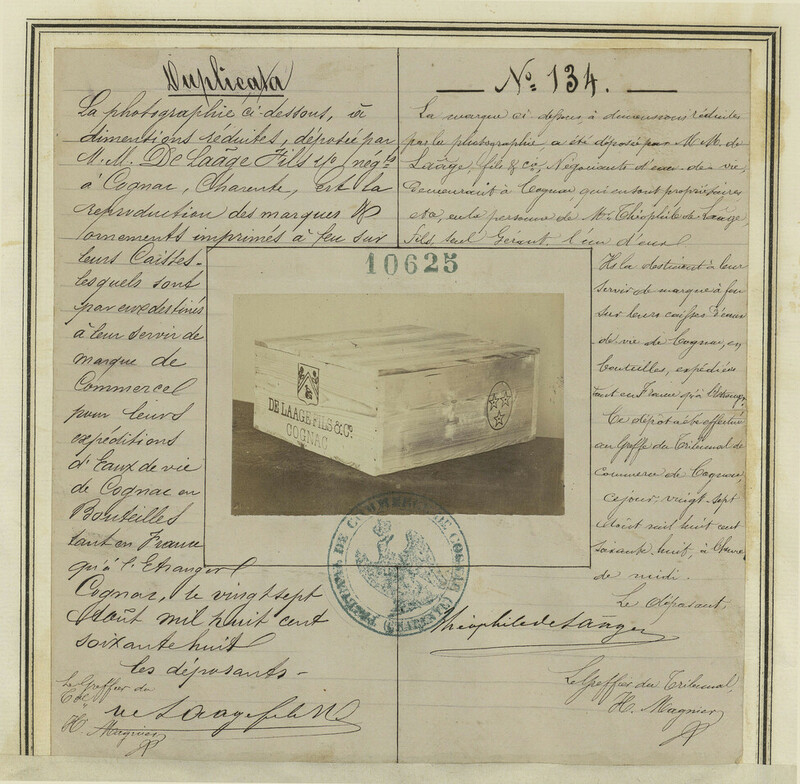 Duplicata
La photographie ci-dessous, à
dimentions réduites, déposée par
M.M. De Laage Fils & Co négts
à Cognac, Charente, est la
reproduction des marques &
ornements imprimés à feu sur
leurs Caisses.
lesquels sont
par eux destinés
à leur servir de
marque de
Commerce
pour leurs
expéditions
d'Eaux de vie
de Cognac en
Bouteilles
tant en France
qu'à l'Etranger
Cognac, le vingt sept
Août mil huit cent
soixante huit
les déposants
Le Greffier du
H. Magnier
de Laage fils & Co
No 134.
La marque ci dessus, à dimensions réduites
par la photographie, a été déposée par M.M. de
Laage, fils & Co, Négociants d'eau-de-vie,
demeurant à Cognac, qui en sont propriétaires
et ce, en la personne de Mr Théophile de Laage,
fils, seul Gérant, l'un d'eux
Ils la destinent à leur
servir de marque à feu
sur leurs caisses d'eaux
de vie de Cognac, en
bouteilles, expédiées
tant en France qu'à l'étranger
Ce dépôt a été effectué
au Greffe du Tribunal de
commerce de Cognac,
ce jour vingt-sept
Août mil huit cent
soixante-huit, à
de midi.
Le déposant,
Théophile de Laage
Le Greffier du Tribunal,
H. Magnier
10625
DE LAAGE FILS & Co.
COGNAC
TRIBUNAL DE COMMERCE DE COGNAC (CHARENTE)